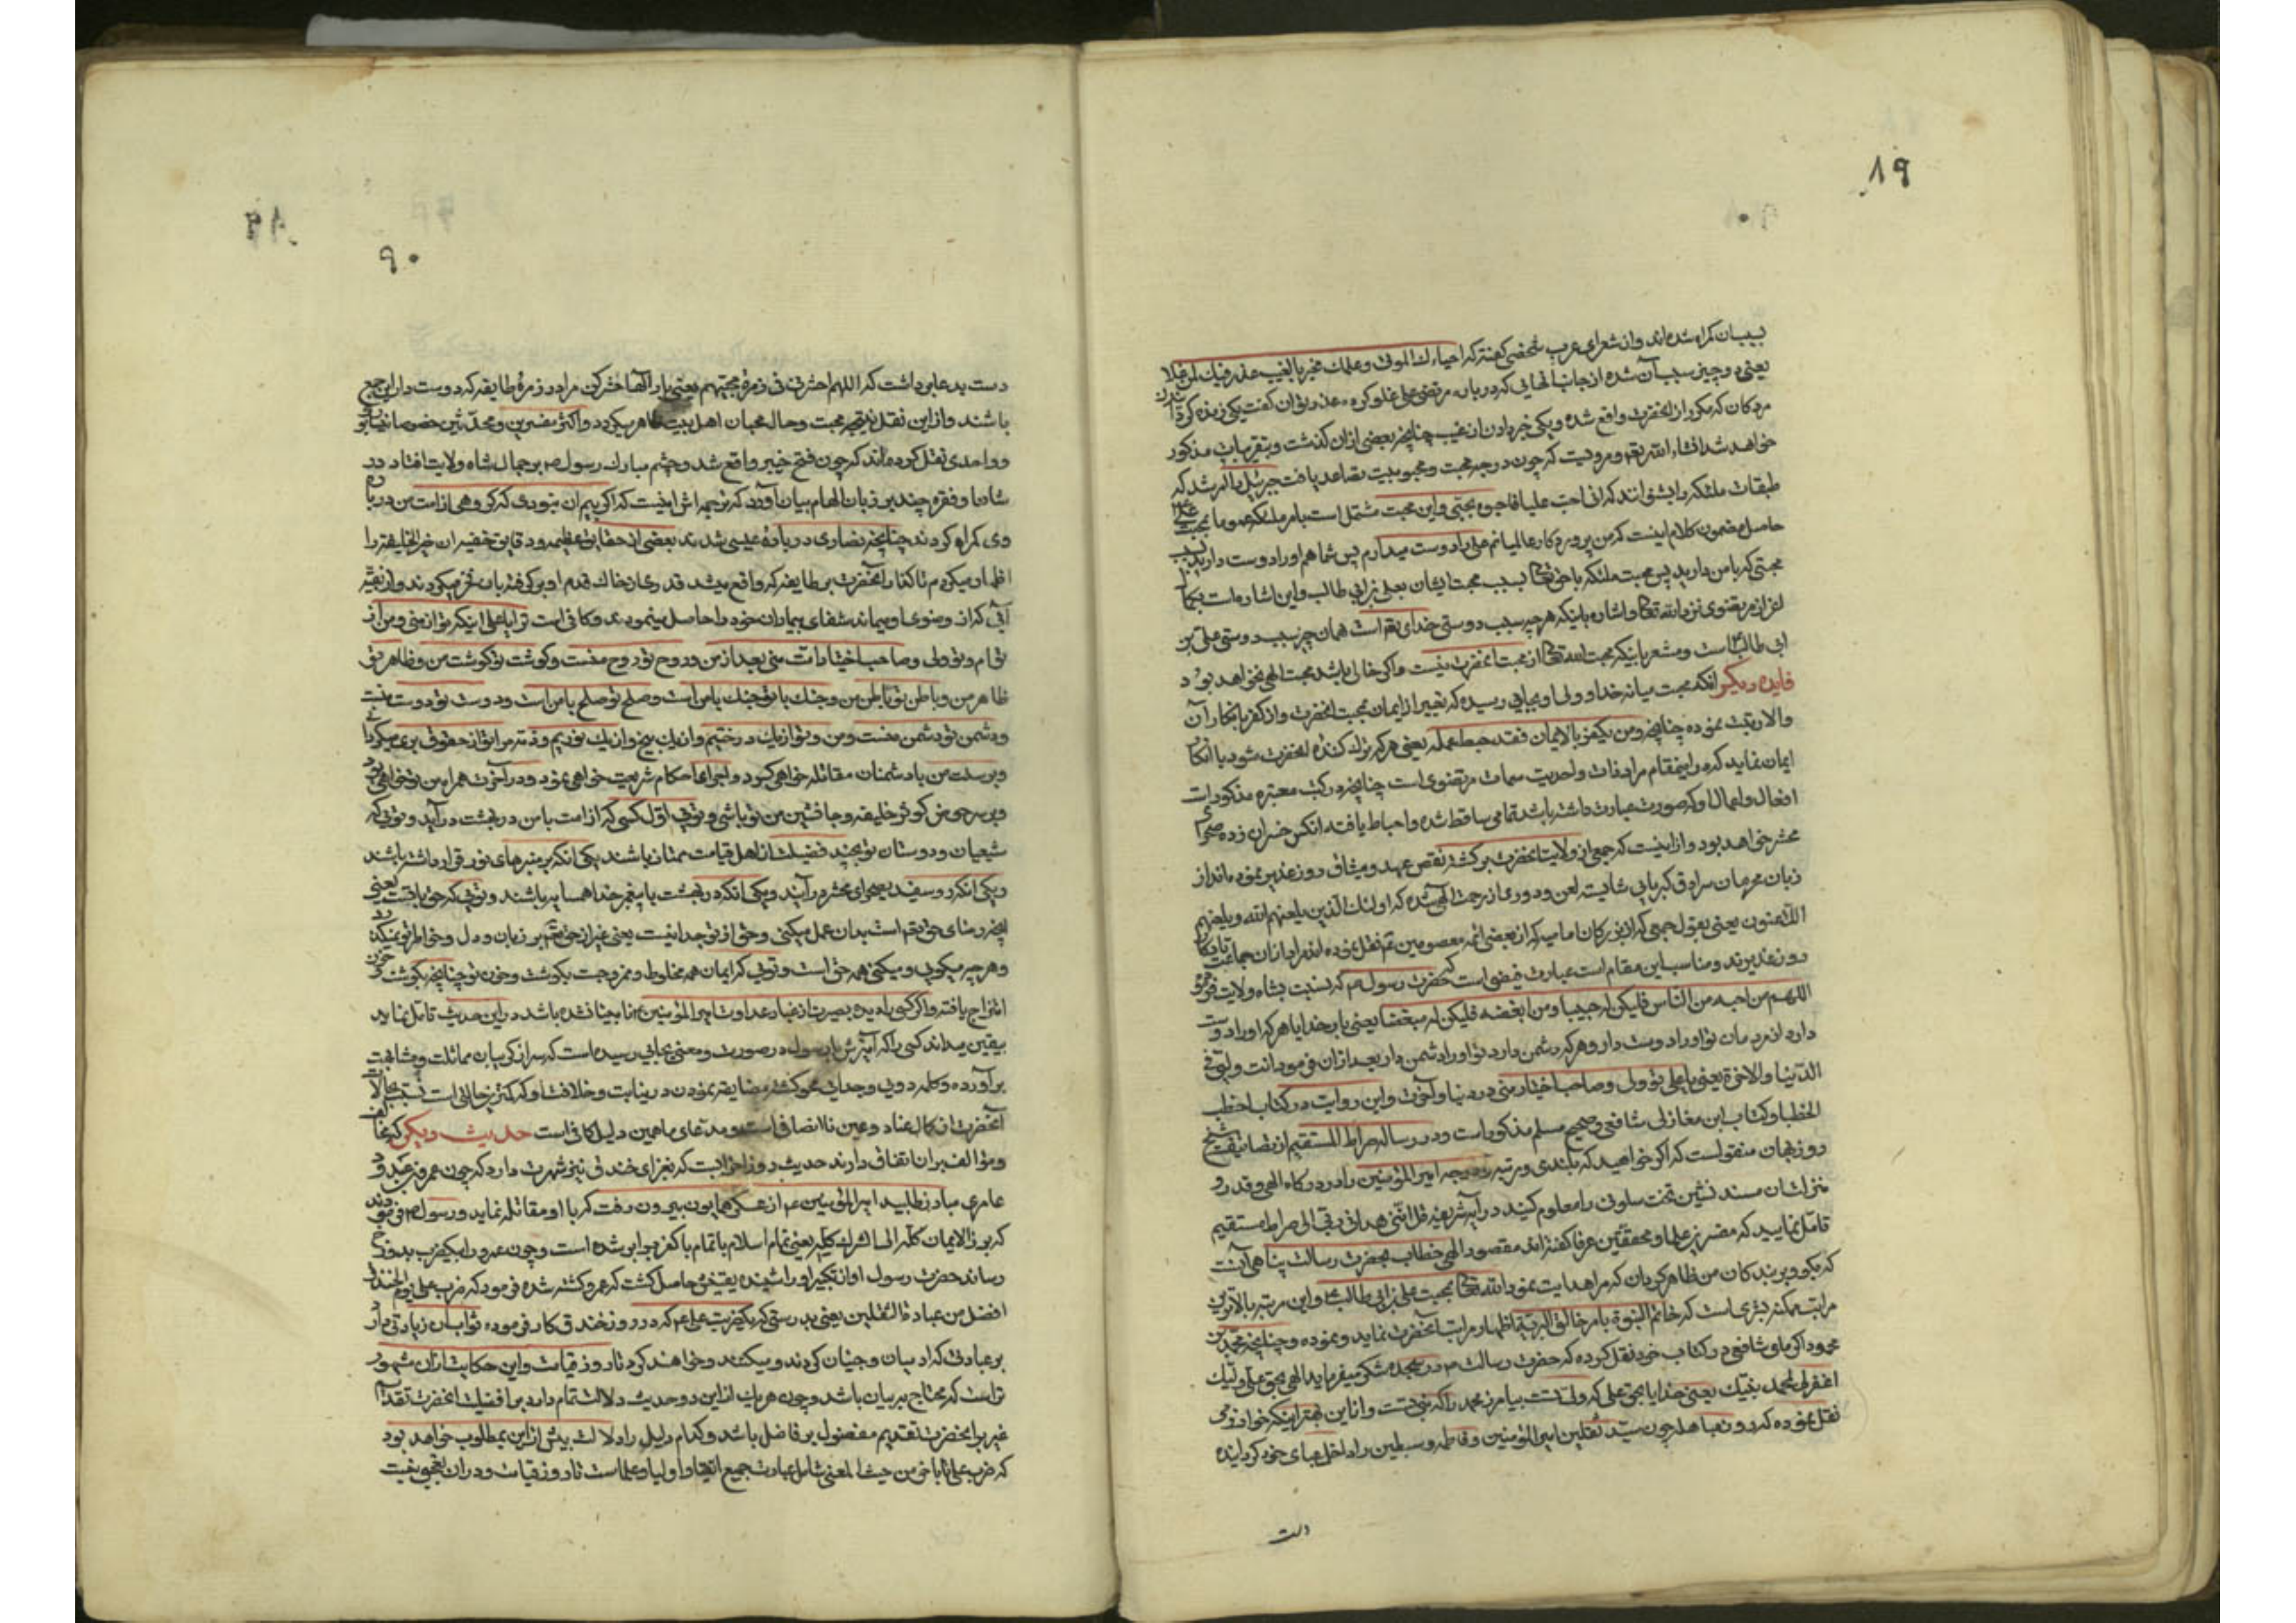 ٨٩
بسبب آن کمراه شده‌اند و از شعرای عرب شخصی کفته که احیاءك الموتی و علمك مخبر بالغیب عذر فیك لمن غلا
یعنی دو چیز سبب آن شده از جانب آنهایی که درباره مرتضی علی غلو کرده عذر توان کفت یکی زنده کردن
مردکان که مکرر از آنحضرت واقع شده و یکی خبر دادن از غیب چنانچه بعضی ازان کذشت و بتقریبات مذکور
خواهد شد انشاء الله تعه و مرویست که چون درجه محبت و محبوبیت تصاعد یافت جبرئیل مامور شد که
طبقات ملئکه را بشنواند که انی احب علیا فاحبوه بمحبتی و این محبت مشتمل است بامر ملئکه عموما بمحبت علی
حاصل مضمون کلام اینست که من پروردکار عالمیانم علی را دوست میدارم پس شما هم او را دوست دارید بسبب
محبتی که با من دارید پس محبت ملئکه با حق تعا بسبب محبت ایشان بعلی بن ابی طالب و این اشاره است بکمال
اعزاز مرتضوی نزد الله تعا و اشاره باینکه هر چیز سبب دوستی خدای تعه است همان چیز سبب دوستی علی بن
ابی طالب است و مشعر باینکه محبت الله تعا از محبت آنحضرت نیست و اکر خالی باشد محبت الهی نخواهد بود
فایده دیکر آنکه محبت میانه خدا و ولی او بجایی رسیده که تعبیر از ایمان بمحبت آنحضرت و از کفر بانکار آن
والا رتبت نموده چنانچه و من یکفر بالایمان فقد حبط عمله یعنی هر که ترك کننده آنحضرت شود با انکار
ایمان نماید که در اینمقام مراد ذات ولایت سمات مرتضوی است چنانچه در کتب معتبره مذکور است
افعال و اعمال او که صورت عبادت داشته باشد تمامی ساقط شده و احباط یافته آنکس خسران زده صحرای
محشر خواهد بود و از اینست که جمعی از ولایت آنحضرت برکشته نقض عهد و میثاق روز غدیر نموده‌اند از
زبان محرمان سرادق کبریایی شایسته لعن و دوری از رحمت الهی شده که اولئك الذین یلعنهم الله و یلعنهم
اللاعنون یعنی بقول جمعی که از بزرکان امامیه که از بعضی ائمه معصومین نقل نموده‌اند مراد از ان جماعت تارکان
روز غدیرند و مناسب این مقام است عبارت فیضی است که حضرت رسول ص که نسبت بشاه ولایت فرموده
اللهم من احبه من الناس فلیکن له حبیبا و من ابغضه فلیکن له مبغضا یعنی بار خدایا هر که او را دوست
دارد از مردمان تو او را دوست دار و هر که دشمن دارد تو او را دشمن دار بعد ازان فرمود انت ولیی فی
الدنیا و الاخرة یعنی یا علی تو ولی و صاحب اختیار منی در دنیا و آخرت و این روایت در کتاب اخطب
الخطبا و کتاب ابن مغازلی شافعی و صحیح مسلم مذکور است و در رساله صراط المستقیم از تصانیف شیخ
روزبهان منقولست که اکر خواهید که بلندی و مرتبه درجه امیر المؤمنین را در درکاه الهی و قدر و
منزلت آن مسند نشین تخت سلونی را معلوم کنید در آیه شریفه قل اننی هدانی ربی الی صراط مستقیم
تامل نمایید که مفسرین علما و محققین عرفا کفته‌اند مقصود الهی خطاب بحضرت رسالت پناهی آنست
که بکو بر بندکان من ظاهر کردان که مرا هدایت نمود الله تعا بمحبت علی بن ابی طالب و این مرتبه بالاترین
مراتب ممکنه بشری است که خاتم النبوة بامر خالق البریة اظهار مراتب آنحضرت نماید و نموده و چنانچه محمد بن
محمود اکرماوی شافعی در کتاب خود نقل کرده که حضرت رسالت ص در سجده شکر میفرماید الهی بحق علی ولیك
اغفر لی لمحمد نبیك یعنی خدایا بحق علی که ولی تست بیامرز محمد را که نبی تست و از این بهتر اینکه خوارزمی
نقل نموده که روز مباهله چون سید ثقلین امیر المؤمنین و فاطمه و سبطین را داخل عبای خود کردانیده
دست
٩٠
دست بدعا برداشت که اللهم احشرنی فی زمرة محبتهم یعنی بار آلها حشر کن مرا در زمره طایفه که دوست دار این جمع
باشند و از این نقل نتیجه محبت و حال محبان اهل بیت ظاهر میکردد و اکثر مفسرین و محدثین خصوصا
و واحدی نقل کرده‌اند که چون فتح خیبر واقع شد و چشم مبارك رسول ص بر جمال شاه ولایت افتاد در
شان او فقره چند بر زبان الهام بیان آورد که ترجمه اش اینست که اکر بیم آن نبودی که کروهی از امت من درباره
وی کمراه کردند چنانچه نصاری در باره عیسی شدند بعضی از حقایق عظیمه و دقایق خفیه آن خیر الخلیقه را
اظهار میکردم تا کفار آنحضرت بر طایفه که واقع میشد قدری از خاك قدم او برکرفته بان فخر میکردند و از بقیه
آبی که از وضوی او بماند شفای بیماران خود را حاصل مینمودند و کافی است ترا یا علی اینکه تو از منی و من از
توام و تو ولی و صاحب اختیار امت منی بعد از من و روح تو روح منست و کوشت تو کوشت من و ظاهر تو
ظاهر من و باطن تو باطن من و جنك با تو جنك با من است و صلح تو صلح با من است و دوست تو دوست منست
و دشمن تو دشمن منست و من و تو از یك درختیم و از یك بیخ و از یك نوریم و ذمه مرا تو از حقوق بری میکردانی
و بر سنت من با دشمنان مقاتله خواهی کرد و اجرای احکام شریعت خواهی نمود و در آخرت همراه من تو خواهی بود
و بر سر حوض کوثر خلیفه و جانشین من تو باشی و تویی اول کسی که از امت با من در بهشت در آید و تویی که
شیعیان و دوستان تو بچند فضیلت از اهل قیامت ممتاز باشند یکی آنکه بر منبرهای نور قرار داشته باشند
و یکی آنکه رو سفید بصحرای محشر درآیند و یکی آنکه در بهشت با پیغمبر خدا همسایه باشند و تویی که حق با تست یعنی
آنچه رضای حق تعه است بدان عمل میکنی و حق از تو جدا نیست یعنی غیر از حق تعه بر زبان و دل و خاطر تو نمیکذرد
و هر چه میکویی و میکنی همه حق است و تویی که ایمان همه مخلوط و ممزوجست بکوشت و خون تو چنانچه بکوشت و خون من
امتزاج یافته و اکر کسی را دیده بصیرت از غبار عداوت امیر المؤمنین ع نابینا نشده باشد در این حدیث تامل نماید
بیقین میداند کسی را که آمیزش با رسول در صورت و معنی بجایی رسیده است که سر از کریبان مماثلت و مشابهت
برآورده و کلمه دویی و جدایی محو کشته مضایقه نمودن در نیابت و خلافت او که کمترین حالتی است نسبت بحالات
آنحضرت از کمال عناد و عین ناانصافی است و مدعای ما همین دلیل کافی است حدیث دیکر که مخالف
و مؤالف بر ان اتفاق دارند حدیث روز احزابست که بغزای خندق نیز شهرت دارد که چون عمرو بن عبدود
عامری مبارز طلبید امیر المؤمنین ع از عسکر همایون بیرون رفت که با او مقاتله نماید و رسول ص فرمودند
که برز الایمان کله الی الشرك کله یعنی تمام اسلام با تمام با کفر برابر شده است و چون عمرو را بیکضرب بدوزخ
رساند حضرت رسول آواز تکبیر او را شنیده یقینش حاصل کشت که عمرو کشته شده فرمود که ضربت علی یوم الخندق
افضل من عبادة الثقلین یعنی بدرستی که یکضربت علی ع که در روز خندق بکار فرموده ثواب ان زیادتی دارد
بر عبادتی که ادمیان و جنیان کردند و میکنند و خواهند کرد تا روز قیامت و این حکایت ازان مشهور
تر است که محتاج ببیان باشد و چون هر یك از این دو حدیث دلالت تمام دارد بر افضلیت آنحضرت تقدم
غیر بر آنحضرت تقدیم مفضول بر فاضل باشد و کدام دلیل را دلالت بیش از این بمطلوب خواهد بود
که ضربت علی با باقی من حیث المعنی شامل عبادت جمیع انبیا و اولیا و علماست تا روز قیامت و دران